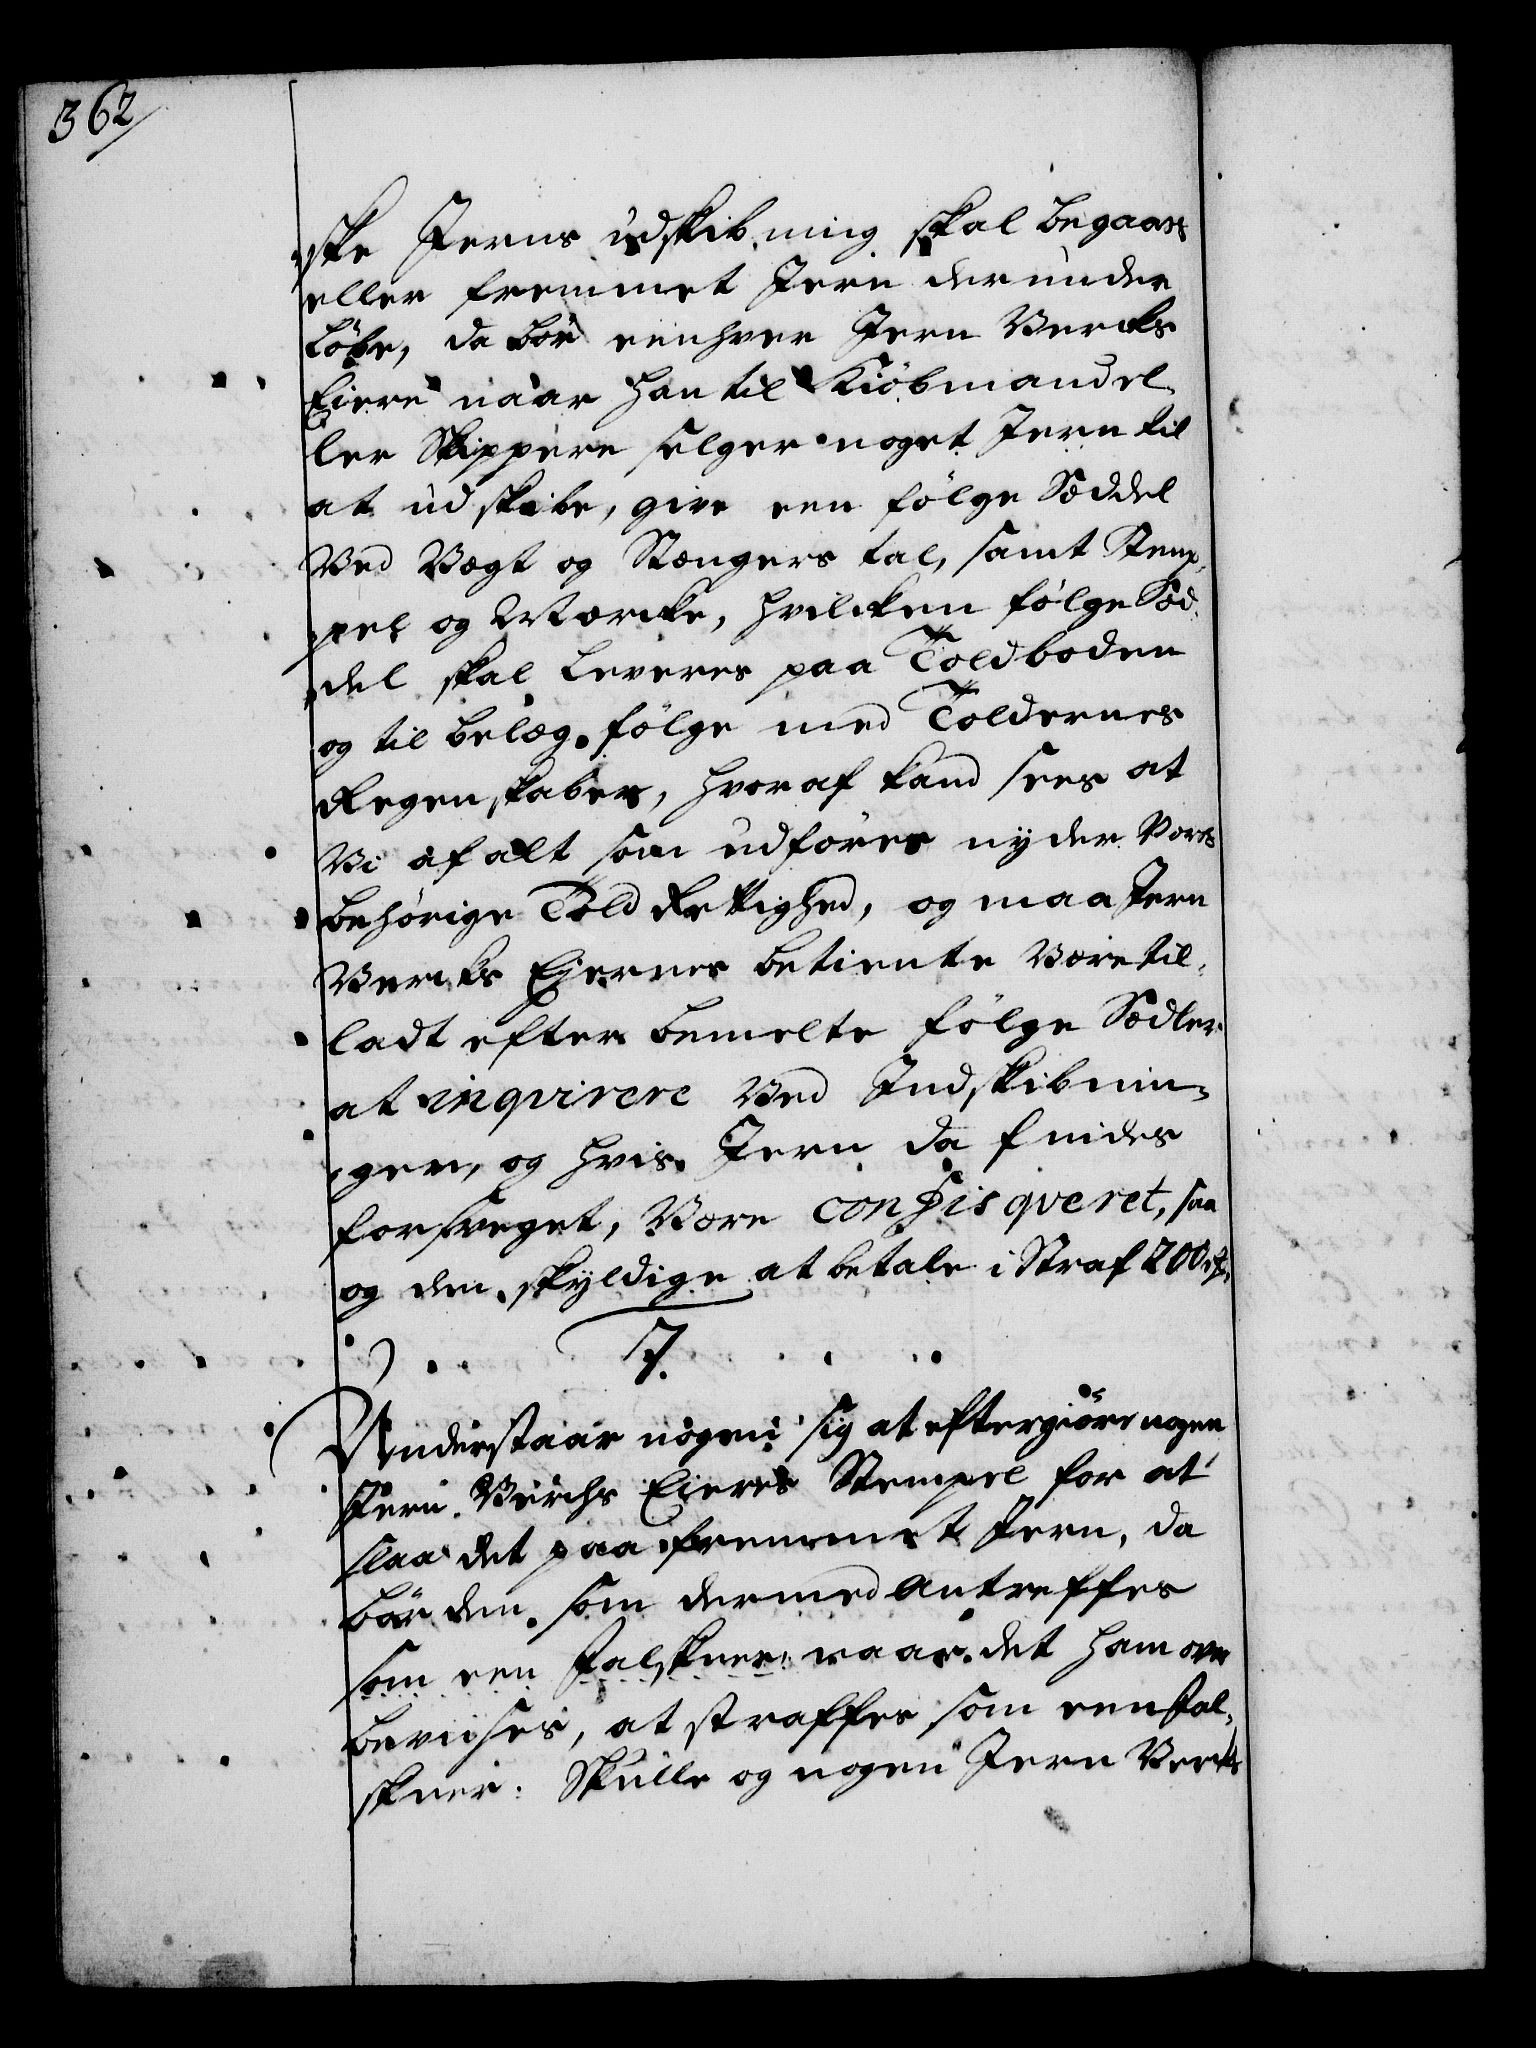 362
ske Jerns udskibning skal begaaes
eller fremmet Jern derunder
løbe, da bør eenhver Jern Vercks
Eiere naar han til Kiøbmænd el¬
ler Skippere selger noget Jern til
at udskibe, give een følge Sæddel
Ved Vægt og Stængers tal, samt Stem¬
pel og Mærcke, hvilcken følge Sæd¬
del skal leveres paa Toldboden
og til belæg følge med Toldernes
Regenskaber, hvoraf kand sees at
Vi af alt som udføres nyder Vores
behørige Told Rettighed, og maa Jern
Vercks Eiernes betiente Være til¬
ladt efter bemelte følge Sædler
at inqvirere Ved Indskibnin¬
gen, og hvis Jern da findes
forsveget, Være confisqveret, saa
og den skyldige at betale i Straf 200 Rd.
7.
Understaar nogen sig at eftergiøre nogen
Jern Verchs Eieres Stempel for at
slaa det paa fremmet Jern, da
bør den som dermed antreffes
som een Falskner naar det ham over
beviises, at straffes som een Fal¬
skner: Skulle og nogen Jern Vercks